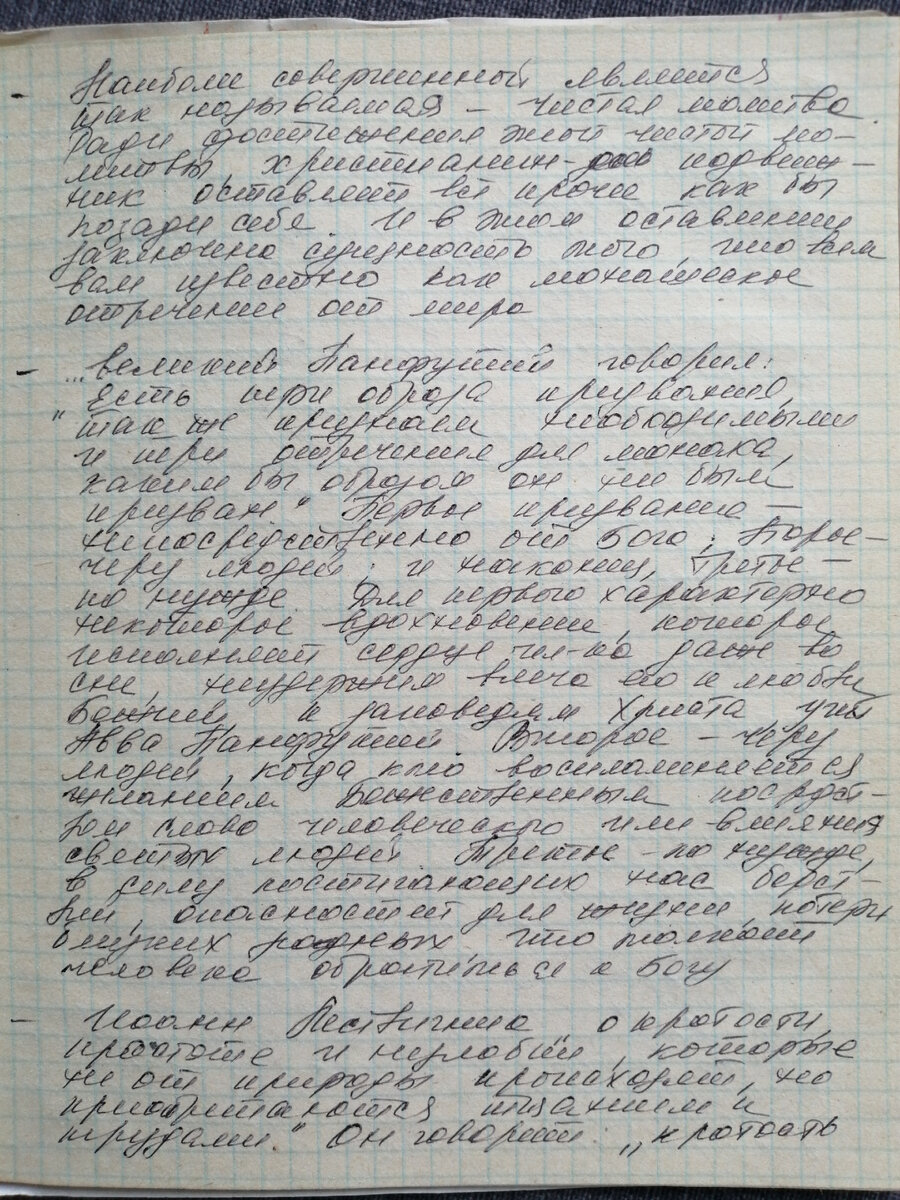 - Наиболее совершенный является
так называемая – чистая молитва
Ради достижения этой чистой мо-
литвы, христианин- подвиж-
ник оставляет всё прочее как бы
позади себя. И в этом оставлении
заключено сущность того, что всем
вам известно как монашеское
отречение от мира
- „...великий Панфутий говорил:
"Есть три образа призвания,
так же признаем необходимыми
и три отречения для монаха,
каким бы образом он не был
призван" Первое призвание –
непосредственно от Бога; Второе –
через людей; и наконец, Третье –
по нужде. Для первого характерно
некоторое вдохновение, которое
исполняет сердце чел-ка даже во
сне, неудержим влеча его к любви
Божией, и заповедям Христа учит
Авва Панфутий. Второе – через
людей, когда кто воспламеняется
желанием Божественным посредст-
вом слова человеческого или влияния
святых людей. Третье – по нужде,
в силу постигающих нас бедст-
вий, опасностей для жизни, потери
близких родных что толкает
человека обратиться к Богу
- Иоанн Лествичник „о кротости,
простоте и незлобии, которые
не от природы происходят, но
приобретаются тщанием и
трудами." Он говорит: „кротость